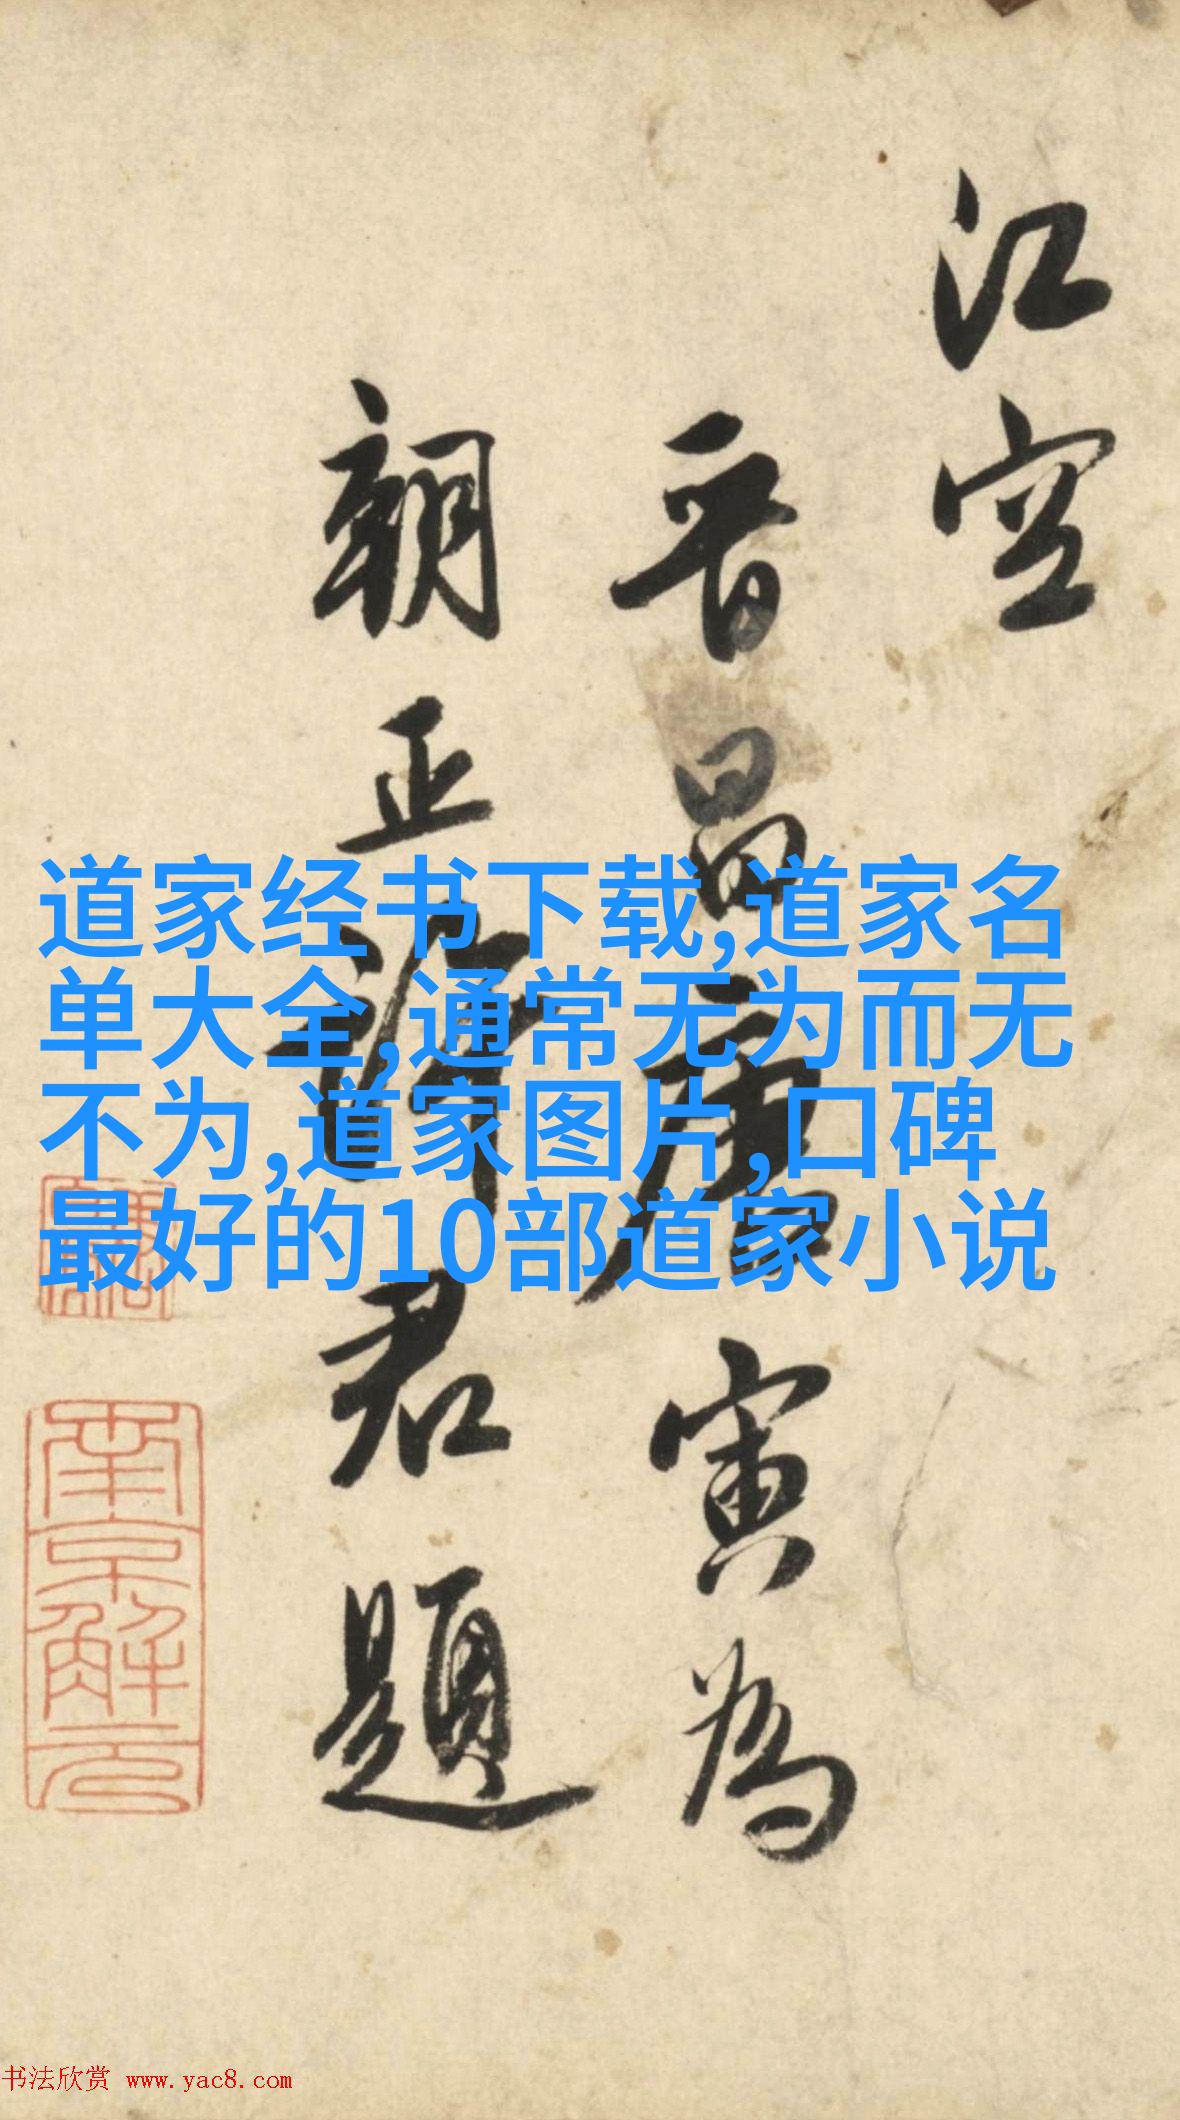 江空
晋昌唐寅為
朝正許君題
道家经书下载,道家名
单大全,通常无为而无
不为,道家图片,口碑
最好的10部道家小说
南京解元
书法欣赏 www.yac8.com